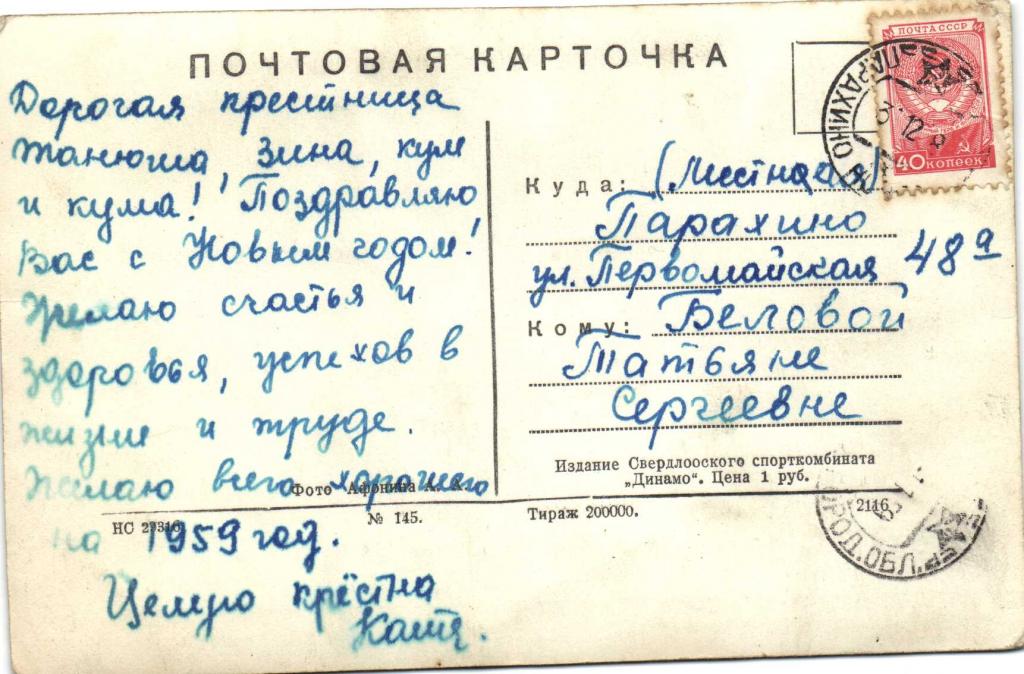 ПОЧТОВАЯ КАРТОЧКА
ПОЧТА СССР
40 КОПЕЕК
ПАРАХИНО
3 12
Дорогая крестница
Танюша, Зина, кум
и кума! Поздравляю
Вас с Новым годом!
Желаю счастья и
здоровья, успехов в
жизни и труде.
Желаю всего хорошего
на 1959 год.
Целую крёстна
Катя.
Куда: (Местная)
Парахино
ул. Первомайская 48а
Кому: Беловой
Татьяне
Сергеевне
Издание Свердлооского спорткомбината
„Динамо“. Цена 1 руб.
Фото Афонина А. Х.
НС 27316 № 145. Тираж 200000. 2116
ГОРОД. ОБЛ.